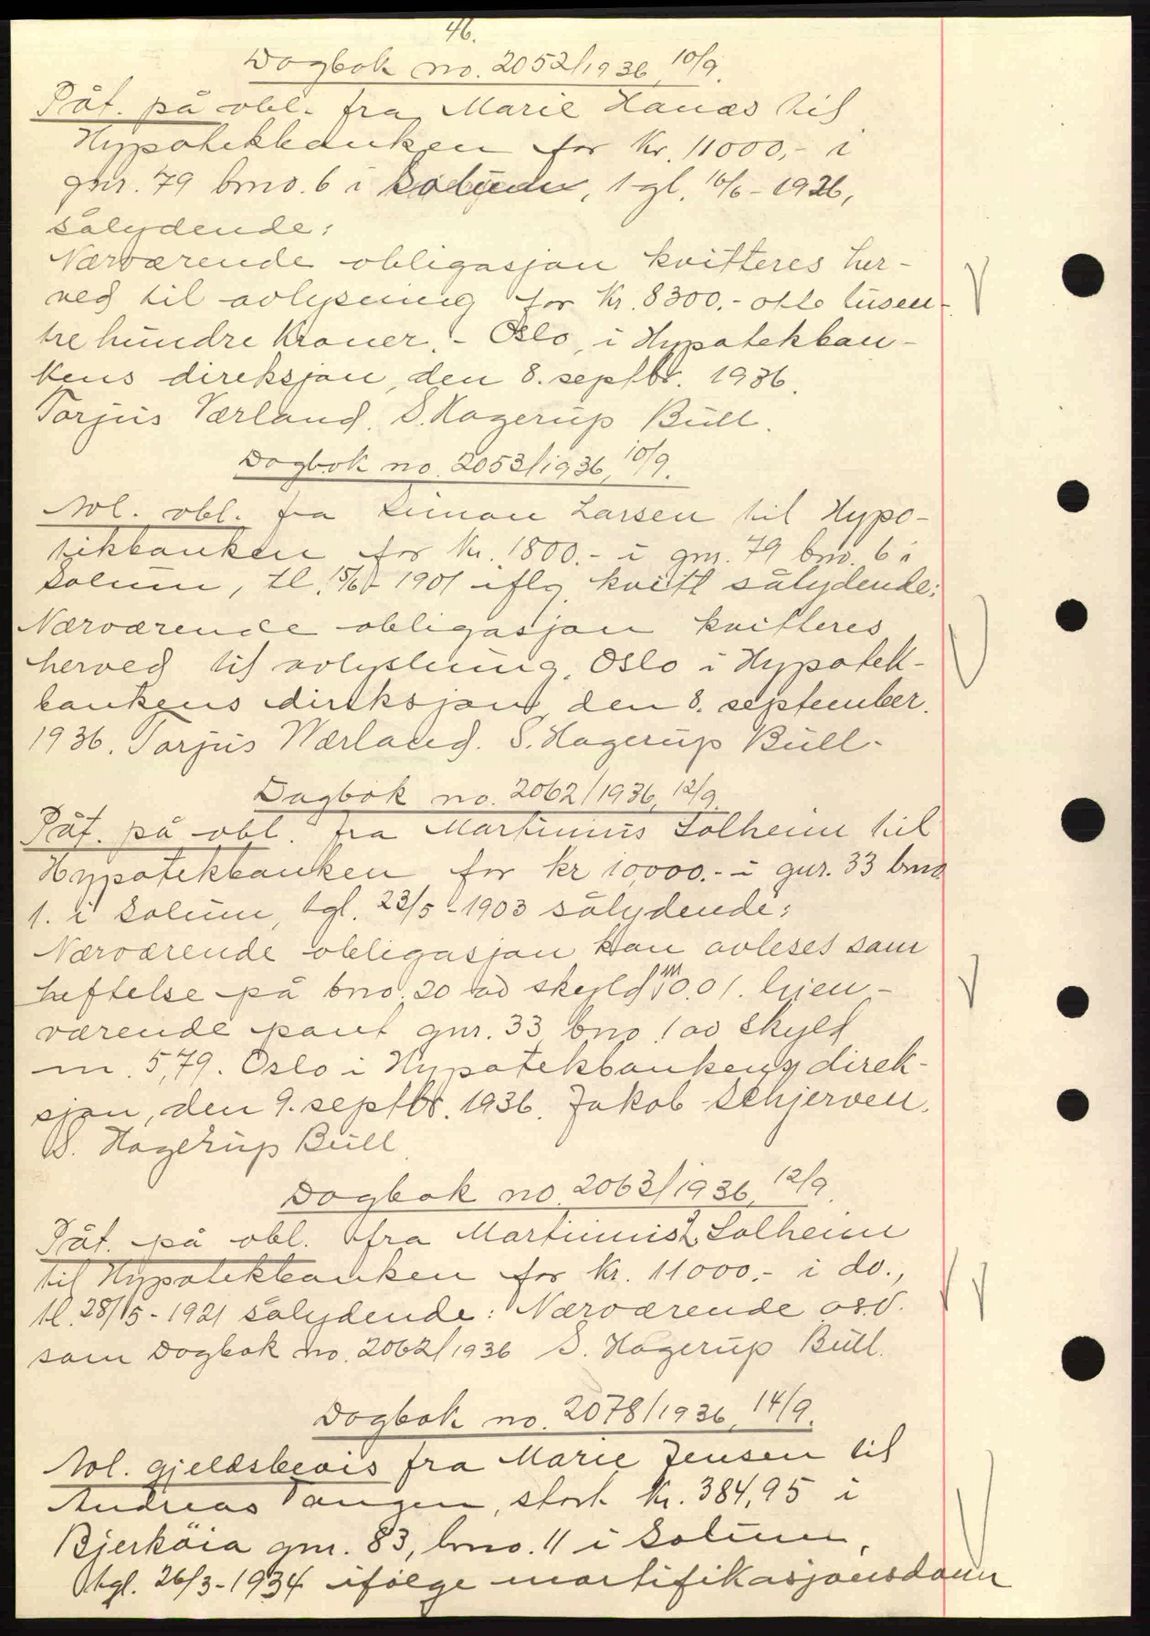 46.
Dagbok no. 2052/1936, 10/9.
Påt. på obl. fra Marie Hanæs til
Hypotekbanken for Kr. 11000,- i
gnr. 79 bno. 6 i Solum, tgl. 16/6-1926,
sålydende:
Nærværende obligasjon kvitteres her-
ved til avlysning for Kr. 8300.- otte tusen-
tre hundre Kroner. - Oslo, i Hypotekban-
kens direksjon, den 8. septbr. 1936.
Torjus Værland. S. Hagerup Bull.
Dagbok no. 2053/1936, 10/9.
Avl. obl. fra Simon Larsen til Hypo-
tekbanken for Kr. 1800.- i gnr. 79 bno. 6 i
Solum, tl. 15/6-1901 iflg. kvitt sålydende:
Nærværende obligasjon kvitteres
herved til avlysning. Oslo i Hypotek-
bankens direksjon, den 8. september.
1936. Torjus Værland. S. Hagerup Bull.
Dagbok no. 2062/1936, 12/9.
Påt. på obl. fra Martinius Solheim til
Hypotekbanken for Kr 10,000.- i gnr. 33 bno.
1. i Solum, tgl. 23/5-1903 sålydende:
Nærværende obligasjon kan avleses som
heftelse på bno. 20 av skyld m 0.01. Igjen-
værende pant gnr. 33, bno. 1 av skyld
m. 5,79. Oslo i Hypotekbankens direk-
sjon, den 9. septbr. 1936. Jakob Schjerven.
S. Hagerup Bull.
Dagbok no. 2063/1936, 12/9.
Påt. på obl. fra Martinius Solheim
til Hypotekbanken for Kr. 11000.- i do.,
tl. 28/5-1921 sålydende: Nærværende o.s.v.
som Dagbok no. 2062/1936 S. Hagerup Bull.
Dagbok no. 2078/1936, 14/9.
Avl. gjeldsbevis fra Marie Jensen til
Andreas Tangen, stort Kr. 384,95 i
Bjerköia gnr. 83, bno. 11 i Solum,
tgl. 26/3-1934 ifølge mortifikasjonsdom